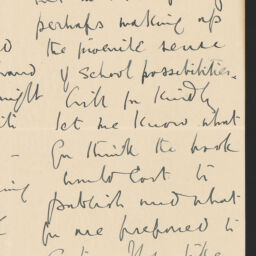 perhaps making up
the juvenile sense
of school possibilities.
Will you kindly
let me know what
you think the book
would cost to
publish and what
you are prepared to